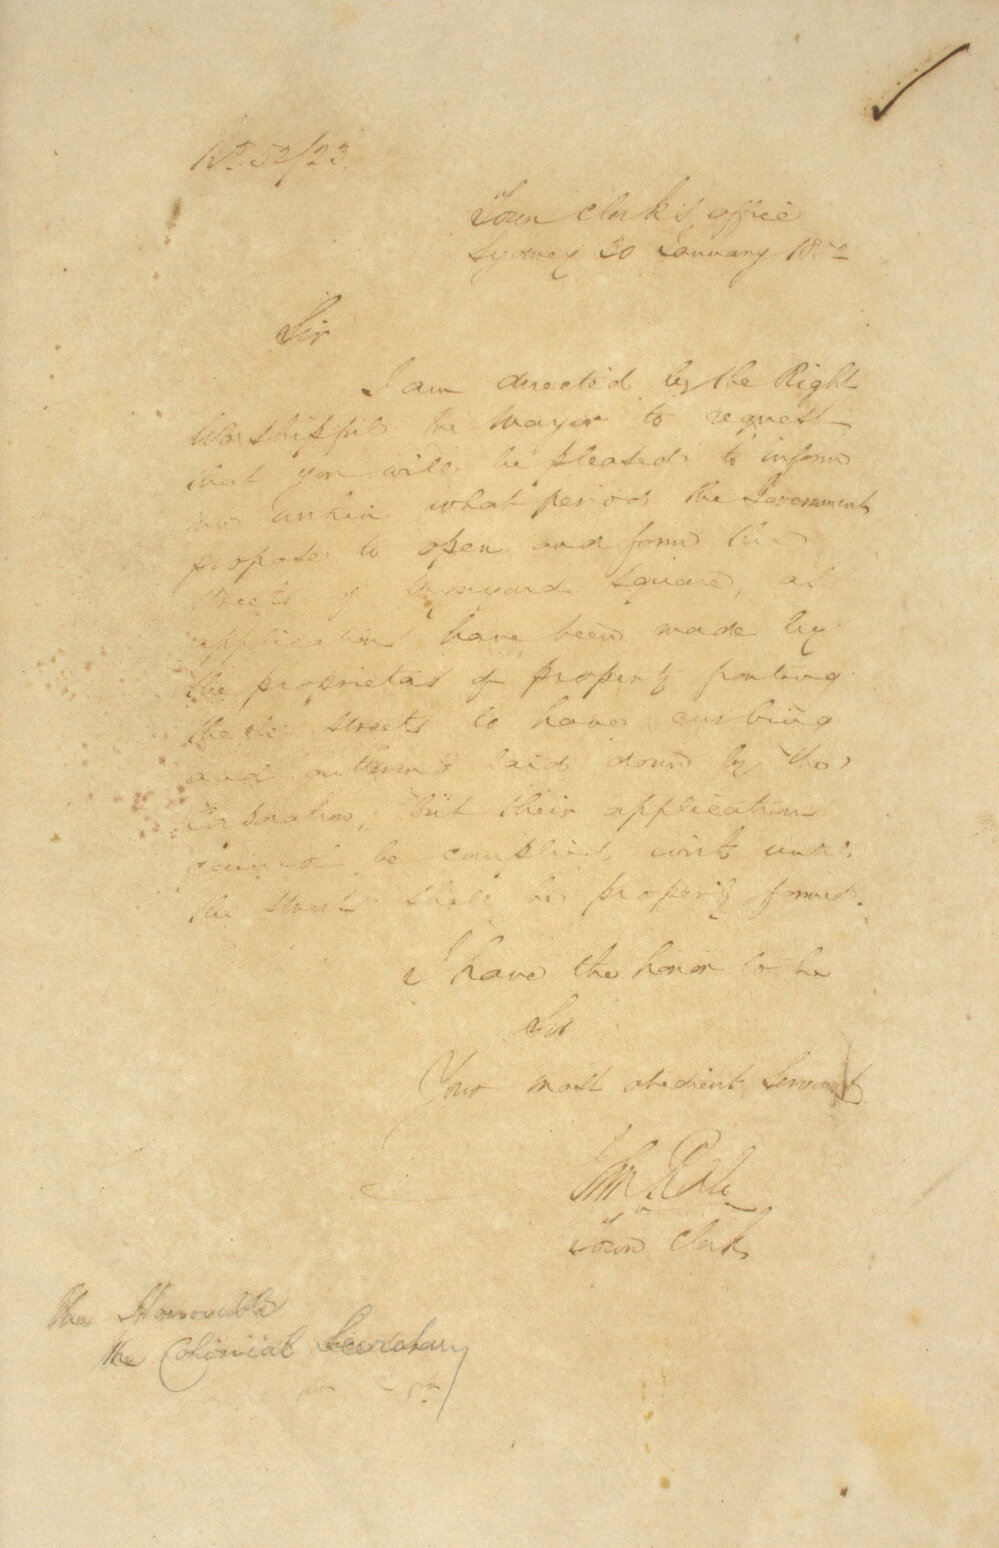 No. 52/23
Town Clerk's office
Sydney 30 January 1852
Sir
I am directed by the Right
Worshipful the Mayor to request
that you will be pleased to inform
me within what period the Government
propose to open and form the
streets of Wynyard Square, as
applications have been made by
the proprietors of property fronting
these streets to have curbing
and guttering laid down by the
Corporation, but their applications
cannot be complied with until
the streets shall be properly formed.
I have the honor to be
Sir
Your most obedient Servant
Town Clerk
The Honorable
the Colonial Secretary